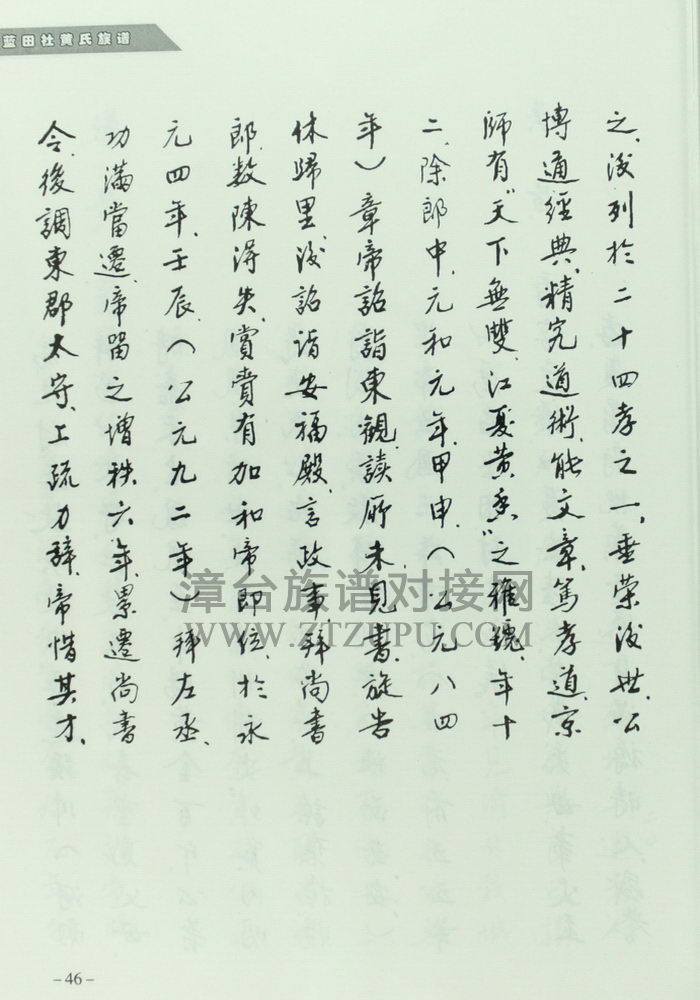 蓝田社黄氏族谱
之，後列於二十四孝之一，垂荣後世。公
博通經典，精究道術，能文章，篤孝道，京
師有"天下無雙，江夏黄香"之雅號。年十
二，除郎中，元和元年，甲申，（公元八四
年）章帝詔詣東觀，讀所未見書，旋告
休歸里，後詔詣安福殿，言政事，拜尚書
郎，数陳得失，賞賚有加，和帝即位，於永
元四年，壬辰，（公元九二年）拜左丞，
功滿當遷，帝留之增秩，六年，累遷尚書
令，後調東郡太守，上疏力辞，帝惜其才，
漳台族谱对接网
WWW.ZTZUPU.COM
-46-